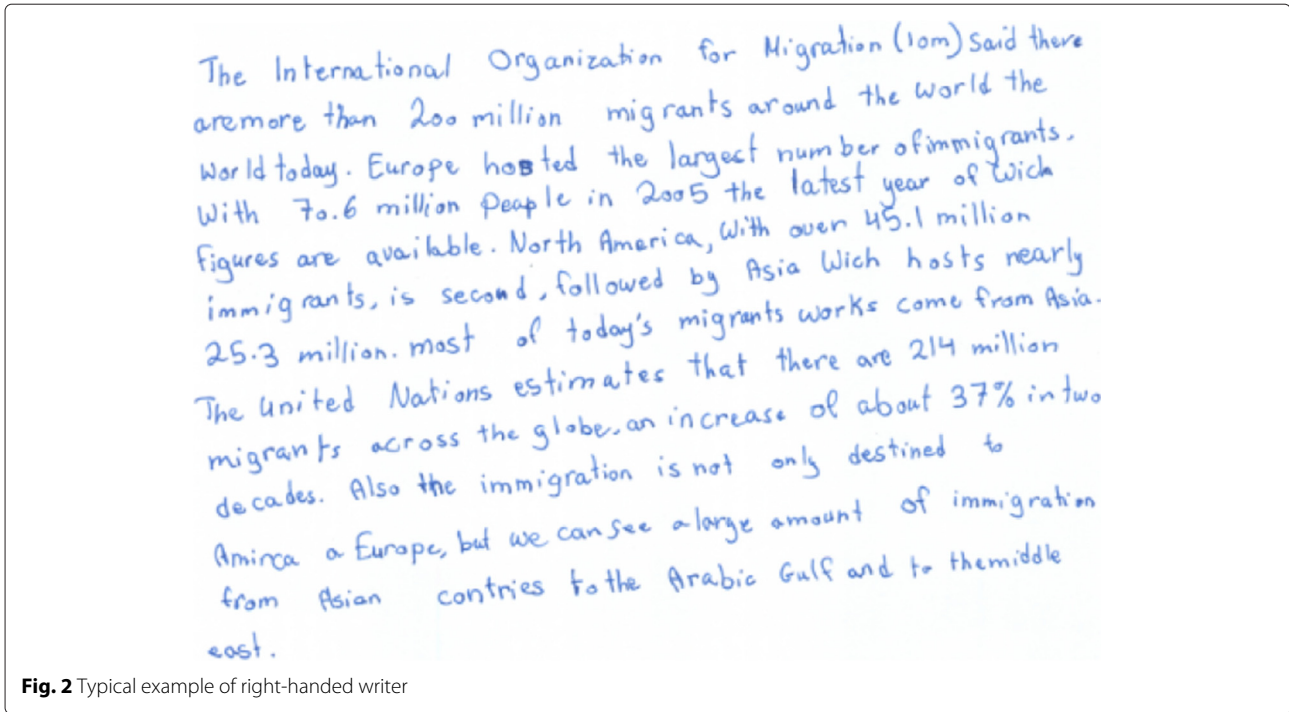 The International Organization for Migration (iom) Said there
aremore than 200 million migrants around the world the
World today. Europe hosted the largest number ofimmigrants.
With 70.6 million peaple in 2005 the latest year of wich
figures are available. North America, With over 45.1 million
immigrants, is second, followed by Asia Wich hosts nearly
25.3 million. most of today's migrants works come from Asia.
The United Nations estimates that there are 214 million
migrants across the globe, an increase of about 37% in two
decades. Also the immigration is not only destined to
Amirca a Europe, but we can see a large amount of immigration
from Asian contries to the Arabic Gulf and to themiddle
east.
Fig. 2 Typical example of right-handed writer